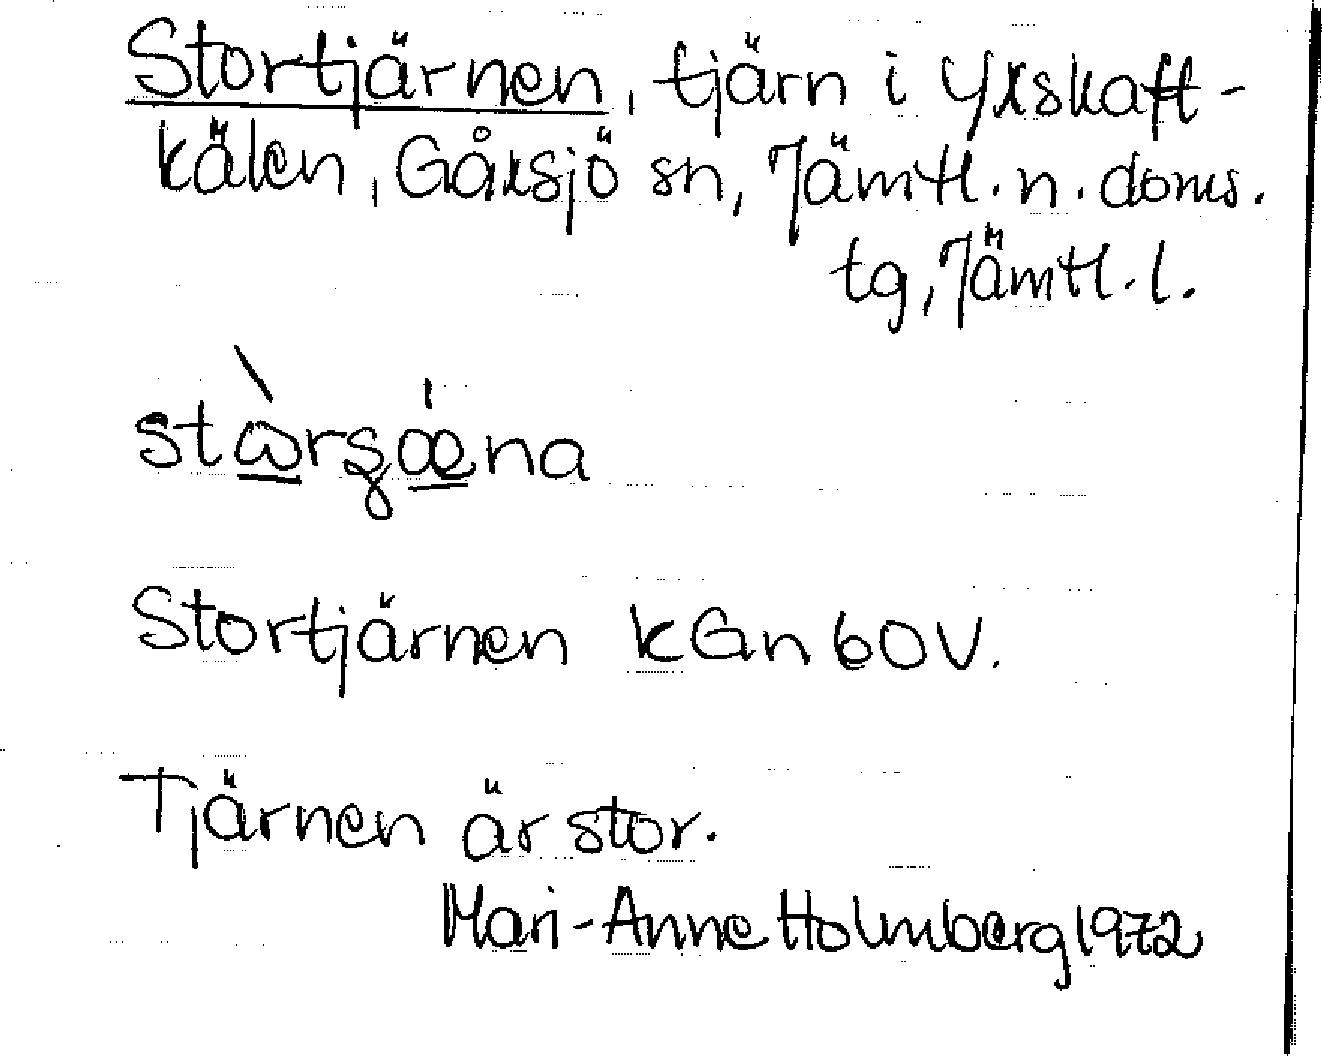 Stortjärnen, tjärn i Yxskaft-
kälen, Gåxsjö sn, Jämtl. n. doms.
tg, Jämtl. l.
Stortjärnen kGn 60V.
Tjärnen är stor.
Mari-Anne Holmberg 1972